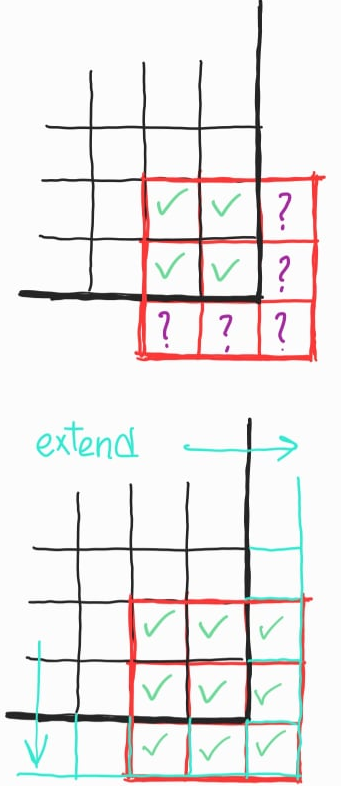 ✓ ✓ ?
✓ ✓ ?
? ? ?
extend →
✓ ✓ ✓
✓ ✓ ✓
✓ ✓ ✓